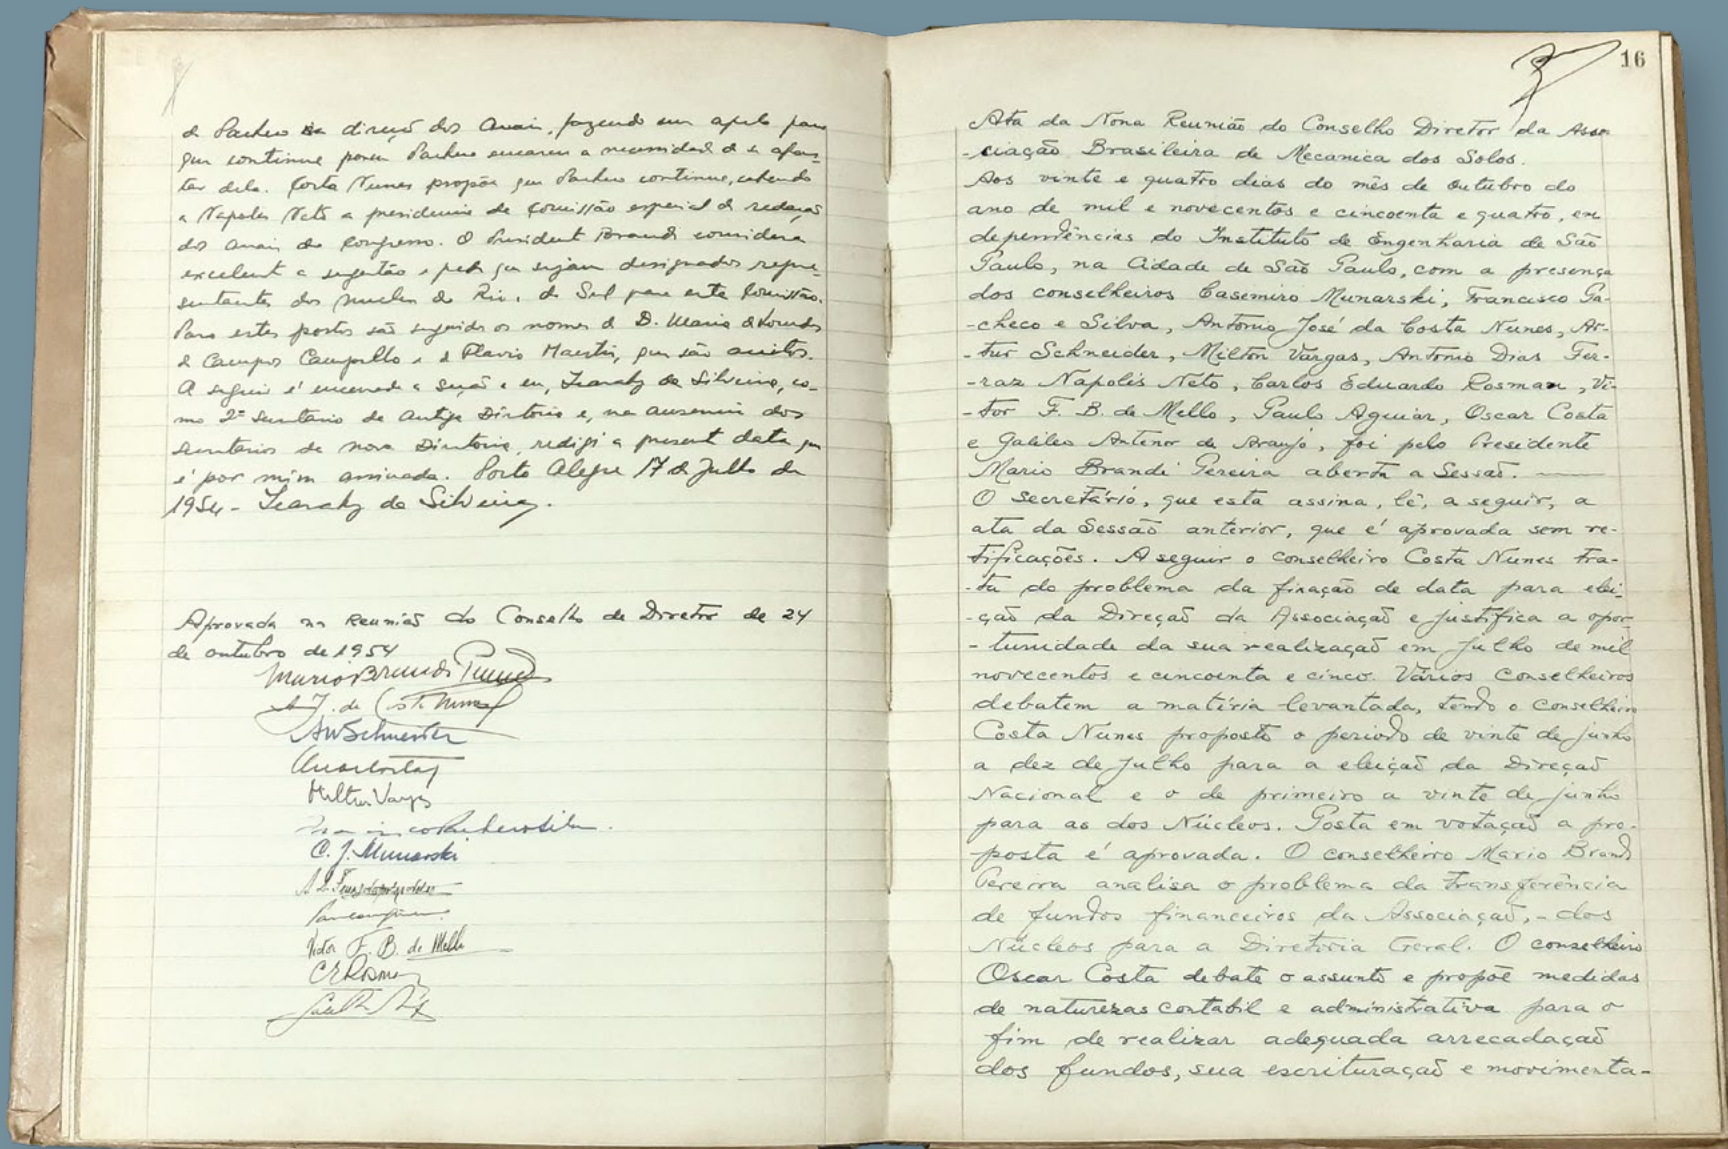 de Pacheco na direção dos Anais, fazendo um apelo para
que continue porem Pacheco encarece a necessidade de se afas-
tar dela. Costa Nunes propõe que Pacheco continue, cabendo
a Napoles Neto a presidencia da Comissão especial de redação
dos Anais do Congresso. O Presidente Brandi considera
excelente a sugestão e pede que sejam designados repre-
sentantes dos nucleos do Rio e do Sul para esta Comissão.
Para estes postos são sugeridos os nomes de D. Maria de Lourdes
de Campos Campello e de Flavio Maestri, que são aceitos.
A seguir é encerrada a seção e eu, da Silveira, co-
mo 2º Secretario da antiga Diretoria e, na ausencia dos
secretarios da nova Diretoria, redigi a presente data que
é por mim assinada. Porto Alegre 17 de Julho de
1954 - da Silveira.
Aprovada na Reunião do Conselho de Diretor de 24
de outubro de 1954
Mario Brandi Pereira
A. J. da Costa Nunes
Milton Vargas
C. J. Munarski
Victor F. B. de Mello
C E Rosman
16
Ata da Nona Reunião do Conselho Diretor da Asso
-ciação Brasileira de Mecanica dos Solos.
Aos vinte e quatro dias do mês de outubro do
ano de mil e novecentos e cincoenta e quatro, em
dependências do Instituto de Engenharia de São
Paulo, na Cidade de São Paulo, com a presença
dos conselheiros Casemiro Munarski, Francisco Pa-
-checo e Silva, Antonio José da Costa Nunes, Ar-
-tur Schneider, Milton Vargas, Antonio Dias Fer-
-raz Napolis Neto, Carlos Eduardo Rosman, Vi-
-tor F. B. de Mello, Paulo Aguiar, Oscar Costa
e Galileo Antenor de Araujo, foi pelo Presidente
Mario Brandi Pereira aberta a Sessão.
O secretário, que esta assina, lê, a seguir, a
ata da Sessão anterior, que é aprovada sem re-
tificações. A seguir o conselheiro Costa Nunes tra-
-ta do problema da fixação de data para elei-
-ção da Direção da Associação e justifica a opor-
-tunidade da sua realização em julho de mil
novecentos e cincoenta e cinco. Vários Conselheiros
debatem a matéria levantada, tendo o conselheiro
Costa Nunes proposto o periodo de vinte de junho
a dez de julho para a eleição da Direção
Nacional e o de primeiro a vinte de junho
para as dos Núcleos. Posta em votação a pro-
posta é aprovada. O conselheiro Mario Brandi
Pereira analisa o problema da transferência
de fundos financeiros da Associação, - dos
Núcleos para a Diretoria Geral. O conselheiro
Oscar Costa debate o assunto e propõe medidas
de naturezas contabil e administrativa para o
fim de realizar adequada arrecadação
dos fundos, sua escrituração e movimenta-